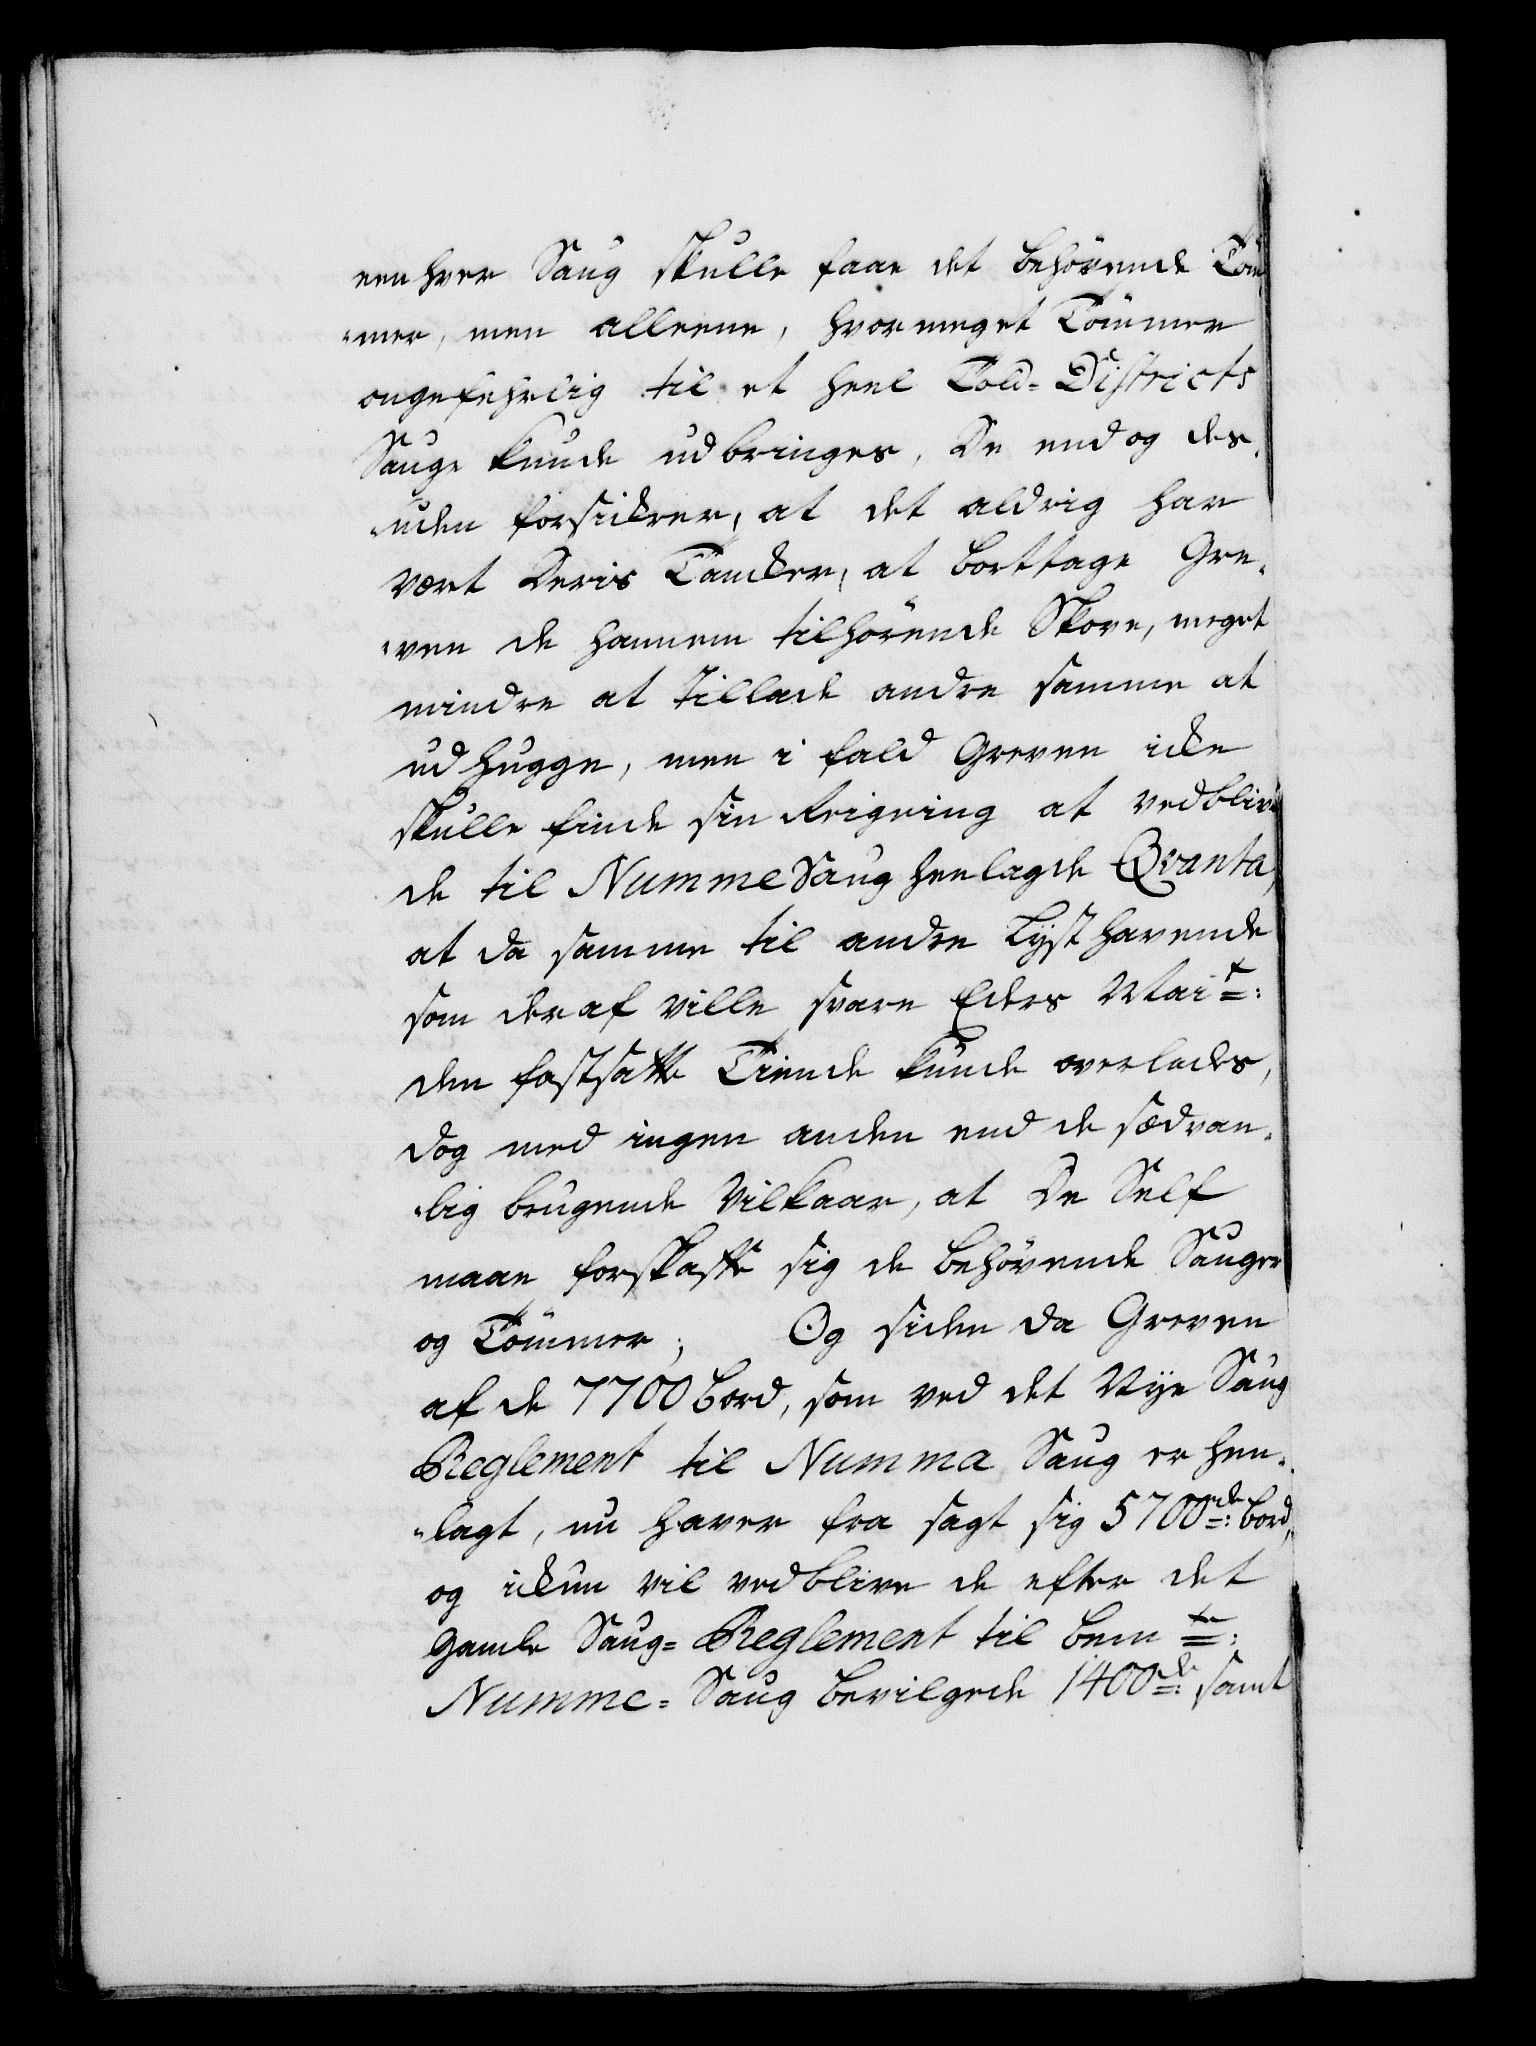 een hver Saug skulle faae det behövende Töm
mer, men alleene, hvor meget Tömmer
ongefehrlig til et heel Told-Districts
Sauge kunde udbringes, De end og des-
uden forsickrer, at det aldrig har
vært Deris Tancker, at borttage Gre-
ven de hannem tilhörende Skove, meget
mindre at tillade andre samme at
udhugge, men i fald Greven icke
skulle finde sin Reigning at vedblive
de til Numme Saug henlagde Qvanta,
at da samme til andre Lyst havende
som deraf ville svare Eders Mait:
den fastsatte Tiende kunde overlades,
dog med ingen anden end de sædvan-
lig brugende Vilkaar, at De Self
maae forskaffe sig de behövende Sauger
og Tömmer; Og siden da Greven
af de 7700 bord, som ved det Nye Saug
Reglement til Numma Saug er hen-
lagt, nu haver fra sagt sig 5700de: bord,
og ickun vil vedblive de efter det
gamle Saug-Reglement til bemte:
Numme-Saug bevilgede 1400de: samt